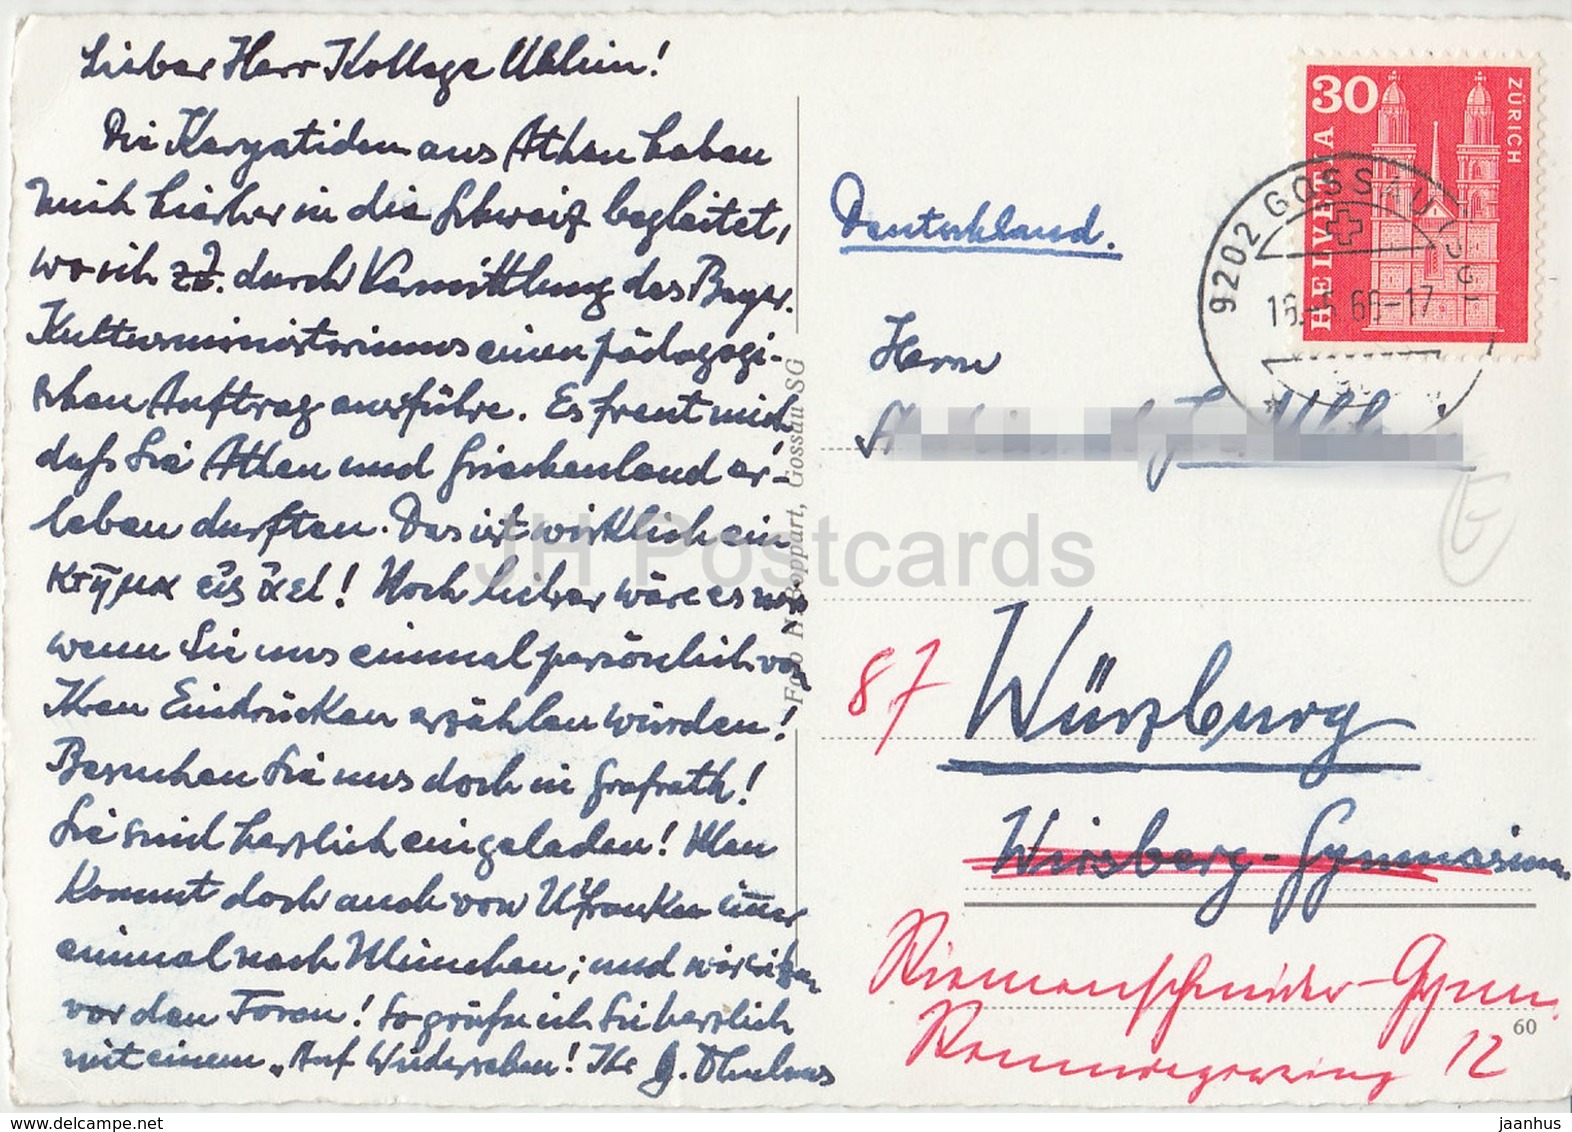 Lieber Herr Kollege Uhlein!
Die Karyatiden aus Athen haben
mich hierher in die Schweiz begleitet,
wo ich z.Z. durch Vermittlung des Bayer.
Kultusministeriums einen pädagogi-
schen Auftrag ausführe. Es freut mich
daß Sie Athen und Griechenland er-
leben durften. Das ist wirklich ein
κτῆμα εἰς ἀεί! Noch lieber wäre es uns
wenn Sie uns einmal persönlich von
Ihren Eindrücken erzählen würden!
Besuchen Sie uns doch in Grafrath!
Sie sind herzlich eingeladen! Man
kommt doch auch von U'franken immer
einmal nach München; und wir sitzen
vor den Toren! So grüße ich Sie herzlich
mit einem „Auf Wiedersehen! Ihr
Foto H. Boppart, Gossau SG
30
ZÜRICH
HELVETIA
9202 GOSSAU (SG)
66-17
Deutschland.
Herrn
87
Würzburg
Wirsberg-Gymnasium
Riemenschneider-Gymn.
Rennwegerring 12
60
JH Postcards
www.delcampe.net
jaanhus